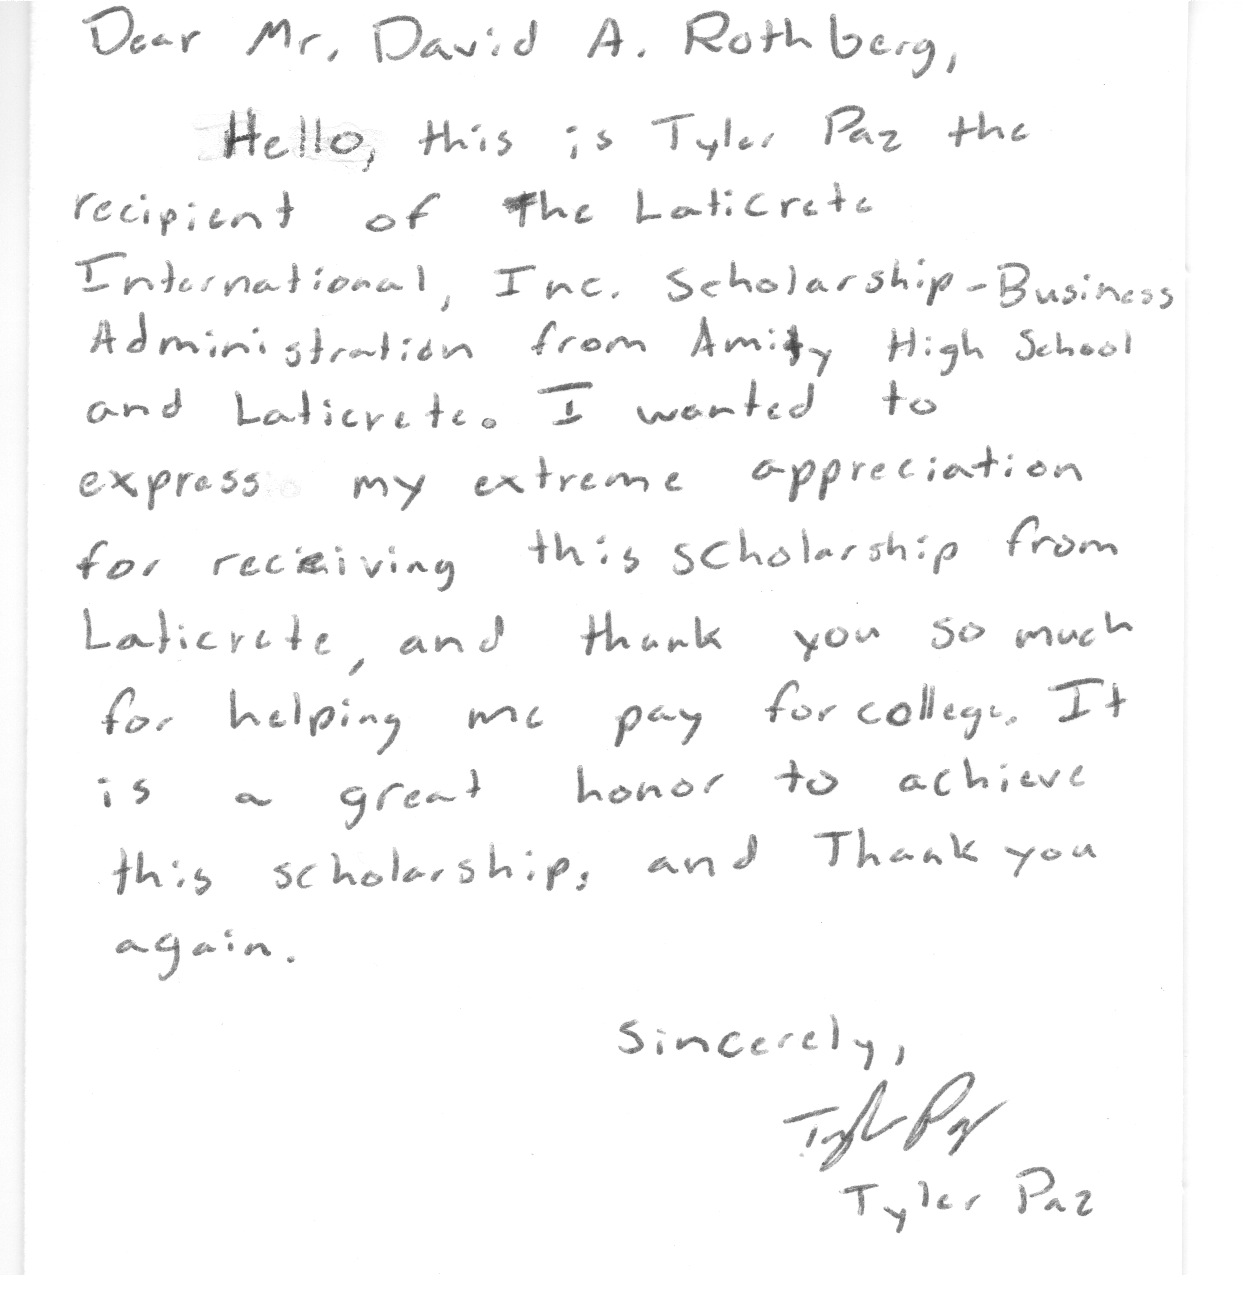 Dear Mr. David A. Rothberg,
Hello, this is Tyler Paz the
recipient of The Laticrete
International, Inc. Scholarship-Business
Administration from Amity High School
and Laticrete. I wanted to
express my extreme appreciation
for receiving this scholarship from
Laticrete, and thank you so much
for helping me pay for college. It
is a great honor to achieve
this scholarship, and Thank you
again.
Sincerely,
Tyler Paz
Tyler Paz